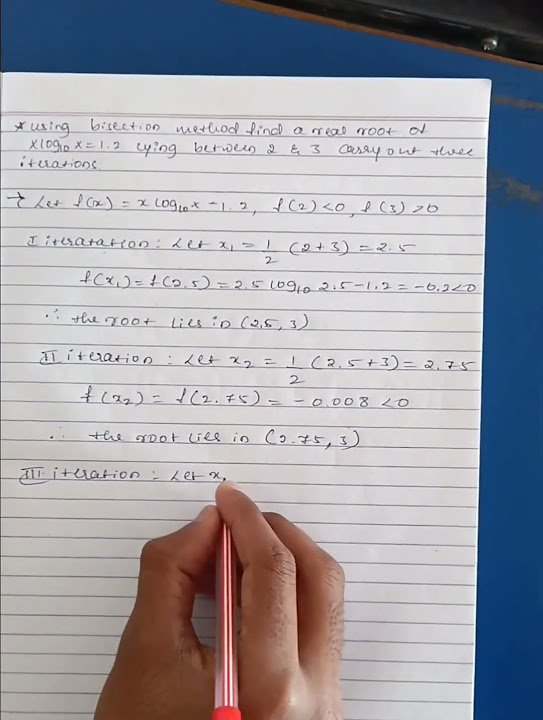 * using bisection method find a real root of
xlog₁₀x = 1.2 lying between 2 & 3 carry out three
iterations.
→ Let f(x) = x log₁₀x - 1.2, f(2) < 0, f(3) > 0
I iteratation : Let x₁ = 1/2 (2+3) = 2.5
f(x₁) = f(2.5) = 2.5 log₁₀ 2.5 - 1.2 = -0.2 < 0
∴ the root lies in (2.5, 3)
II iteration : Let x₂ = 1/2 (2.5+3) = 2.75
f(x₂) = f(2.75) = -0.008 < 0
∴ the root lies in (2.75, 3)
III iteration : Let x